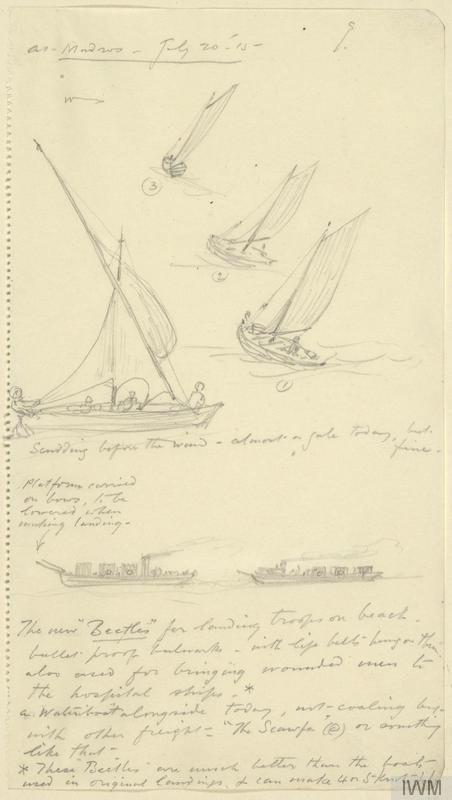 at - Mudros - July 20 '15 -
9.
3
2
1
Scudding before the wind - almost a gale today, but
fine -
Platform carried
on bows, to be
lowered when
making landing -
The new "Beetles" for landing troops on beach -
bullet proof bulwarks - with life belts hung on them
also used for bringing wounded men to
the hospital ships - *
a waterboat alongside today, not coaling but
with other freight - "The Scawfa" (?) or something
like that -
* These "Beetles" are much better than the boats
used in original landings, & can make 4 or 5 knots
IWM